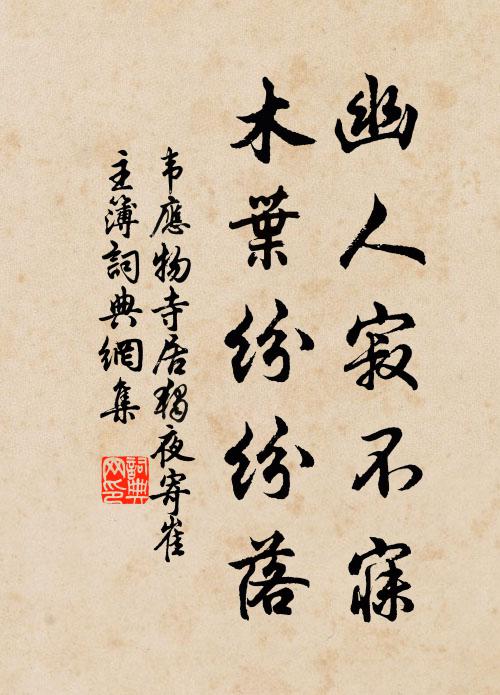 幽人寂不寐
木葉紛紛落
韦應物寺居獨夜寄崔
主簿詞典網集
詞典
网印